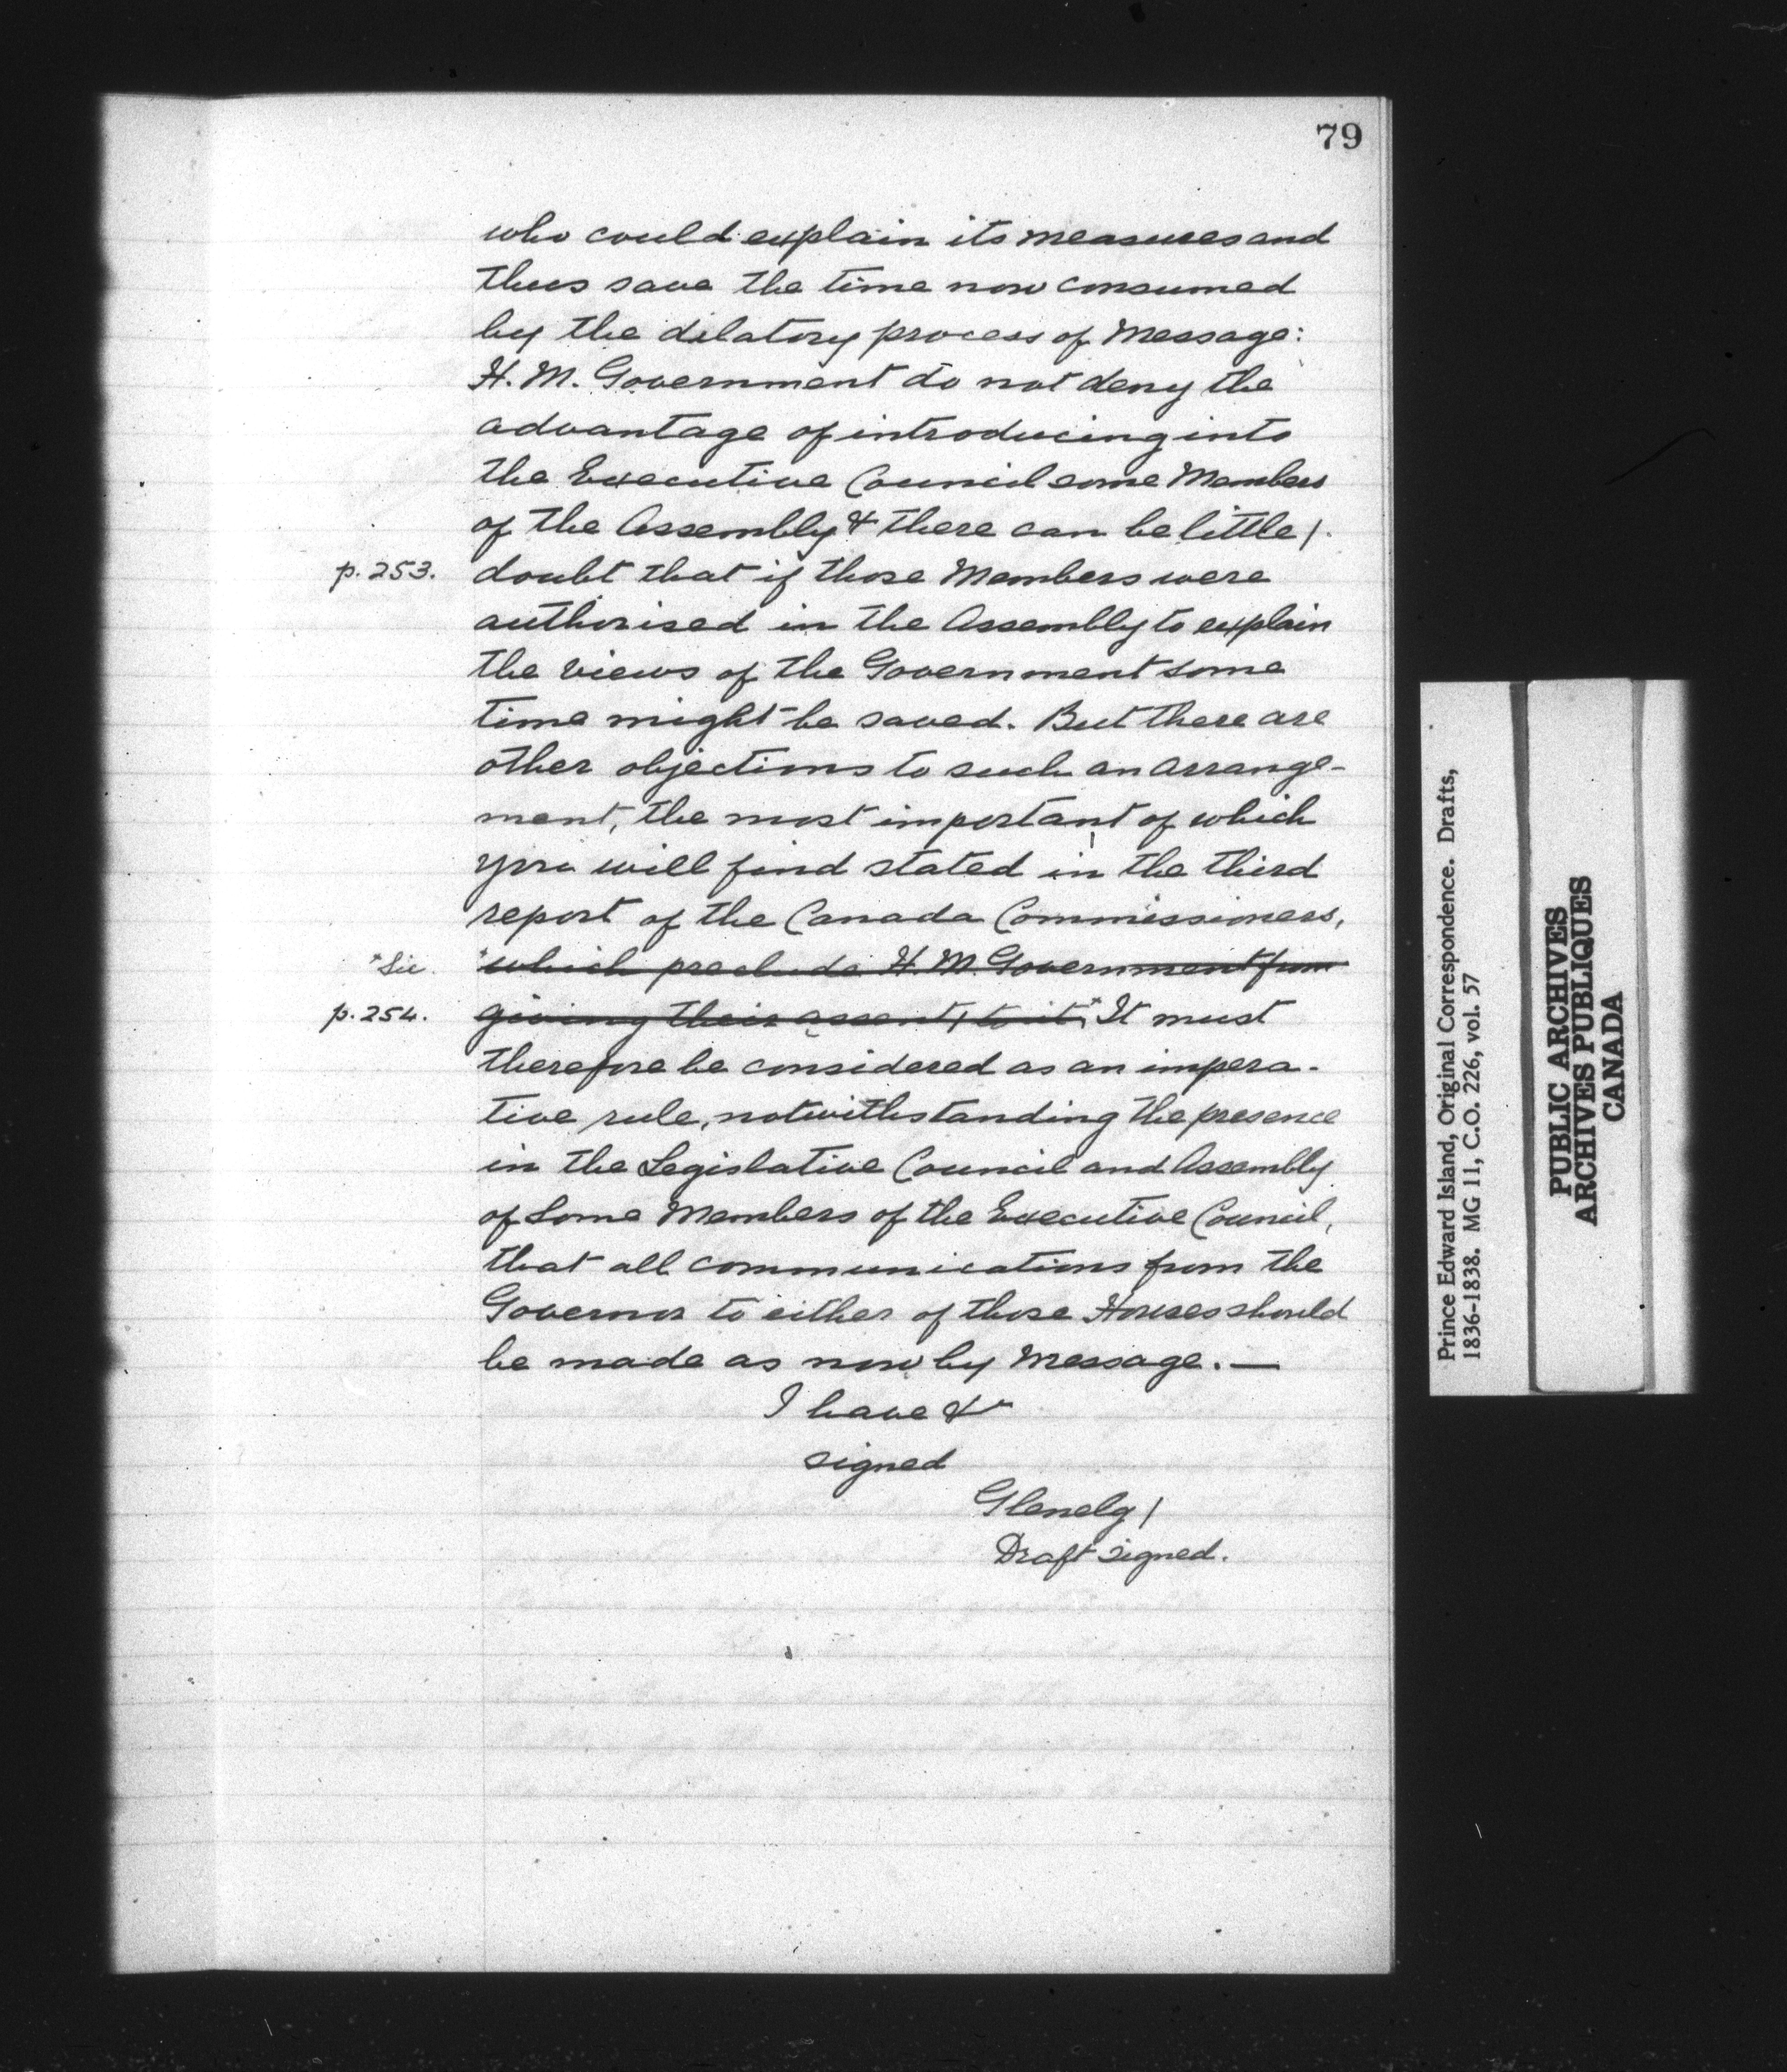 79
who could explain its measures and
thus save the time now consumed
by the dilatory process of Message:
H. M. Government do not deny the
advantage of introducing into
the Executive Council some Members
of the Assembly & there can be little /.
p. 253. doubt that if those Members were
authorised in the Assembly to explain
the views of the Government some
time might be saved. But there are
other objections to such an arrange-
ment, the most important of which
you will find stated in the third
report of the Canada Commissioners,
*Sic. *which preclude H. M. Government from
p. 254. giving their assent / to it.* It must
therefore be considered as an impera-
tive rule, notwithstanding the presence
in the Legislative Council and Assembly
of Some Members of the Executive Council,
that all communications from the
Governor to either of those Houses should
be made as now by Message. —
I have &c
signed
Glenelg /
Draft signed.
Prince Edward Island, Original Correspondence. Drafts,
1836-1838. MG 11, C.O. 226, vol. 57
PUBLIC ARCHIVES
ARCHIVES PUBLIQUES
CANADA